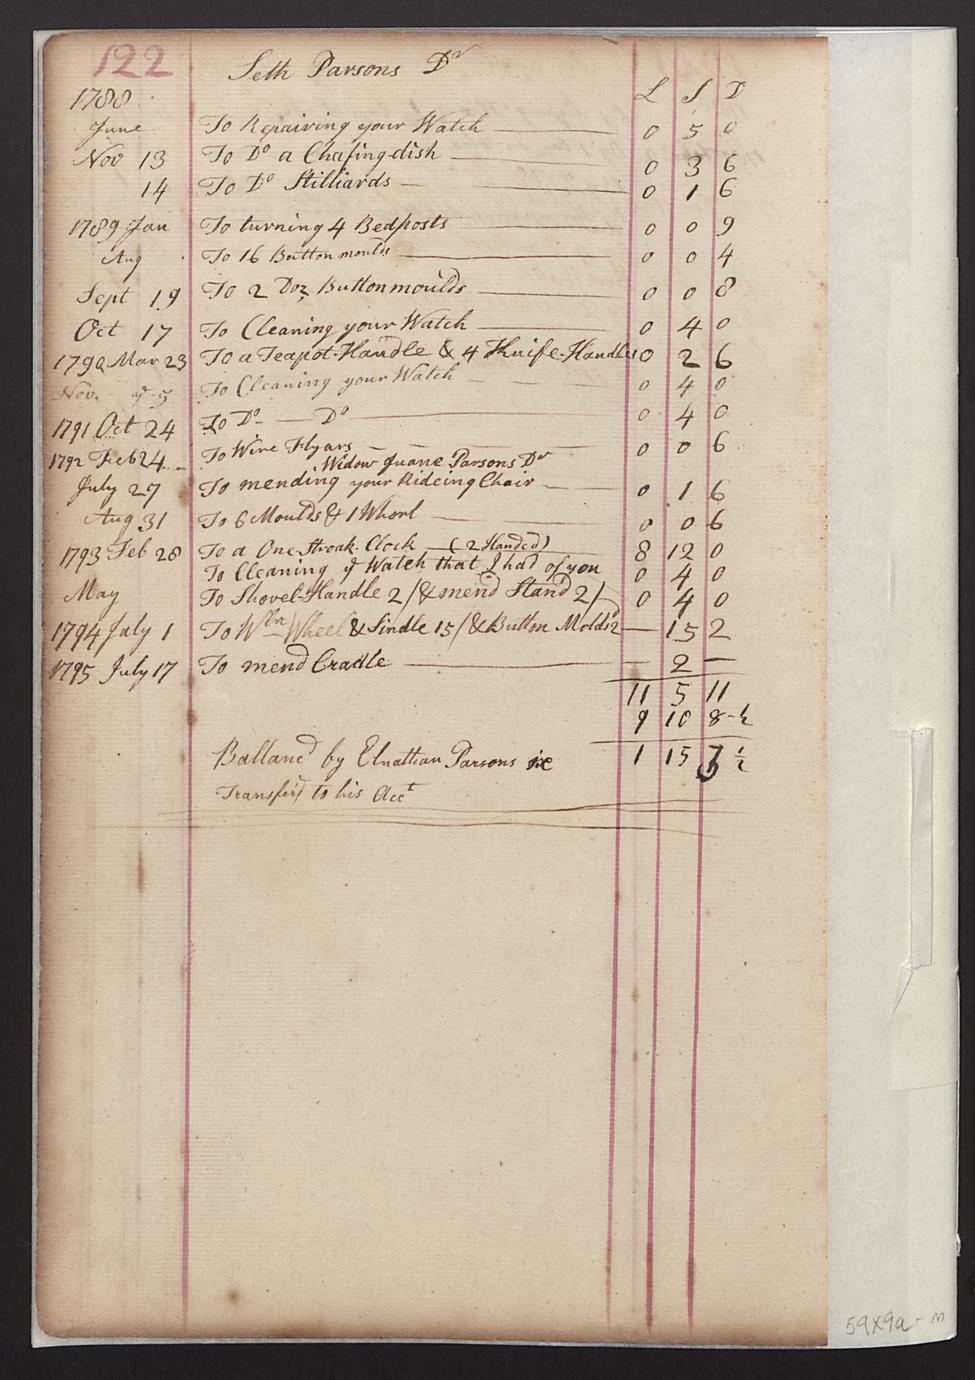 122 Seth Parsons Dr
1788 L S D
June To Repairing your Watch 0 5 0
Nov 13 To Do a Chafing-dish 0 3 6
14 To Do Stilliards 0 1 6
1789 Jan To turning 4 Bedposts 0 0 9
Aug To 16 Button moulds 0 0 4
Sept 19 To 2 Doz Buttonmoulds 0 0 8
Oct 17 To Cleaning your Watch 0 4 0
1790 Mar 23 To a Teapot-Handle & 4 Knife-Handles 0 2 6
Nov. To Cleaning your Watch 0 4 0
1791 Oct 24 To Do Do 0 4 0
1792 Feb 24 To Wire Flyars 0 0 6
Widow Parsons Dr
July 27 To mending your Rideing Chair 0 1 6
Aug 31 To 6 Moulds & 1 Whorl 0 0 6
1793 Feb 28 To a One Stroak Clock (2 Handed) 8 12 0
To Cleaning ye Watch that I had of you 0 4 0
May To Shovel-Handle 2/ & mend Stand 2/ 0 4 0
1794 July 1 To Wheel & Sindle 15/ & Button Molds 2d 15 2
1795 July 17 To mend Cradle 2
11 5 11
9 10 8-½
1 15 ½
Ballancd by Elnathan Parsons
Transferd to his Acct
59x9a-m